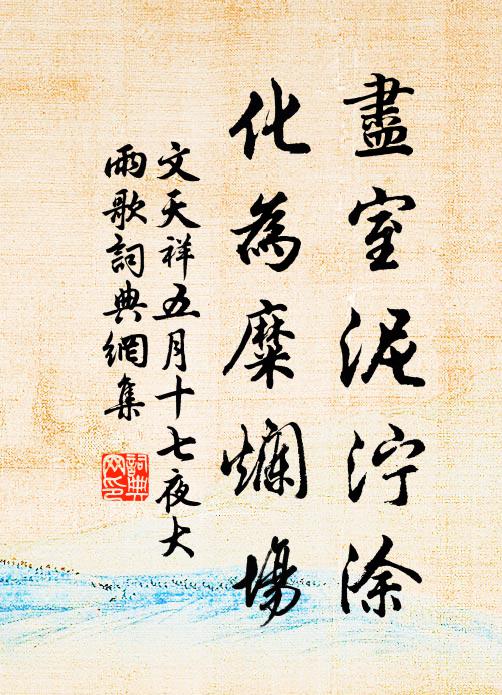 盡室泥泞涂
化為糜爛場
文天祥五月十七夜大
雨歌詞典網集
詞典
网印